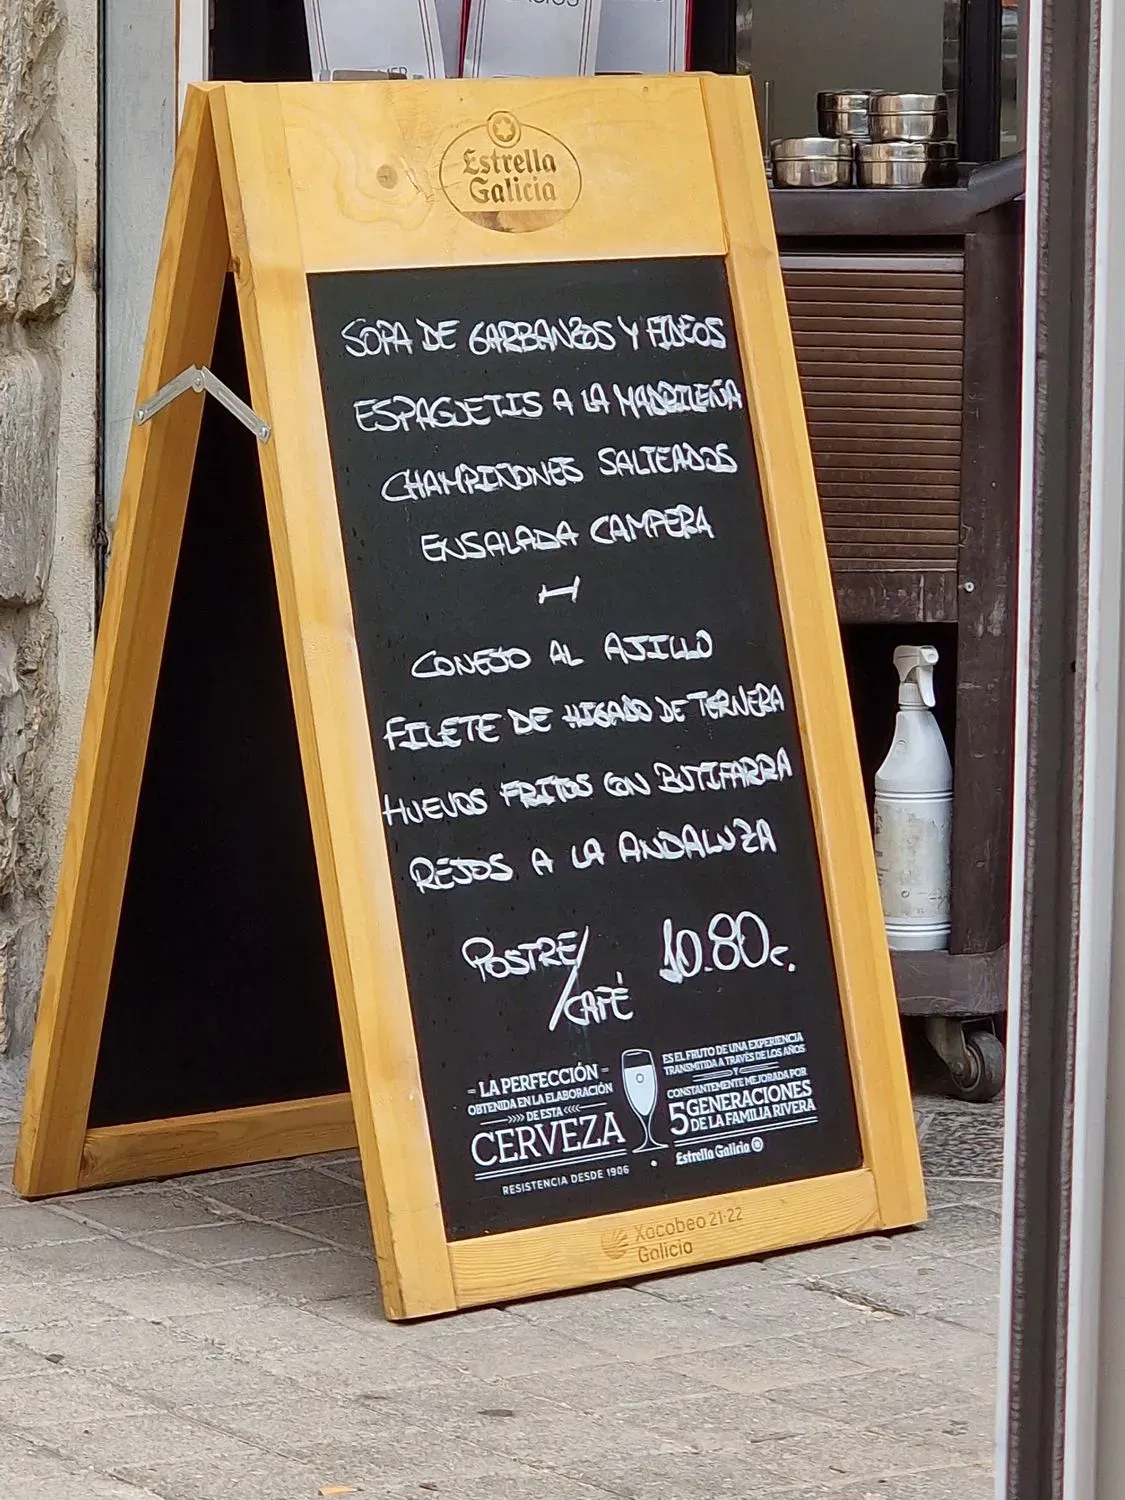 Estrella
Galicia
SOPA DE GARBANZOS Y FIDEOS
ESPAGUETIS A LA MADRILEÑA
CHAMPIÑONES SALTEADOS
ENSALADA CAMPERA
CONEJO AL AJILLO
FILETE DE HIGADO DE TERNERA
HUEVOS FRITOS CON BUTIFARRA
REJOS A LA ANDALUZA
POSTRE/ 10.80€.
CAFÉ
- LA PERFECCIÓN -
OBTENIDA EN LA ELABORACIÓN
>>>> DE ESTA <<<<
CERVEZA
RESISTENCIA DESDE 1906
ES EL FRUTO DE UNA EXPERIENCIA
TRANSMITIDA A TRAVÉS DE LOS AÑOS
Y
CONSTANTEMENTE MEJORADA POR
5 GENERACIONES
DE LA FAMILIA RIVERA
Estrella Galicia
Xacobeo 21·22
Galicia